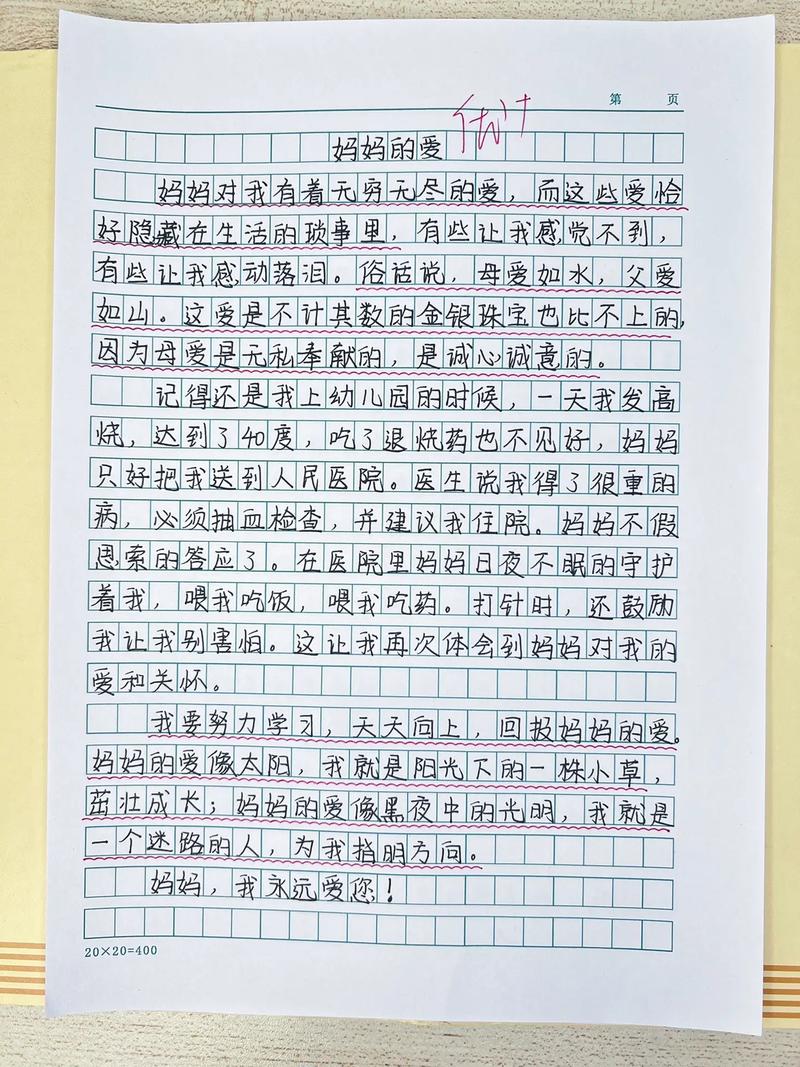 第 页
优++
妈妈的爱
妈妈对我有着无穷无尽的爱，而这些爱恰
好隐藏在生活的琐事里，有些让我感觉不到，
有些让我感动落泪。俗话说，母爱如水，父爱
如山。这爱是不计其数的金银珠宝也比不上的，
因为母爱是无私奉献的，是诚心诚意的。
记得还是我上幼儿园的时候，一天我发高
烧，达到了40度，吃了退烧药也不见好，妈妈
只好把我送到人民医院。医生说我得了很重的
病，必须抽血检查，并建议我住院。妈妈不假
思索的答应了。在医院里妈妈日夜不眠的守护
着我，喂我吃饭，喂我吃药。打针时，还鼓励
我让我别害怕。这让我再次体会到妈妈对我的
爱和关怀。
我要努力学习，天天向上，回报妈妈的爱。
妈妈的爱像太阳，我就是阳光下的一株小草，
茁壮成长；妈妈的爱像黑夜中的光明，我就是
一个迷路的人，为我指明方向。
妈妈，我永远爱您！
20×20=400